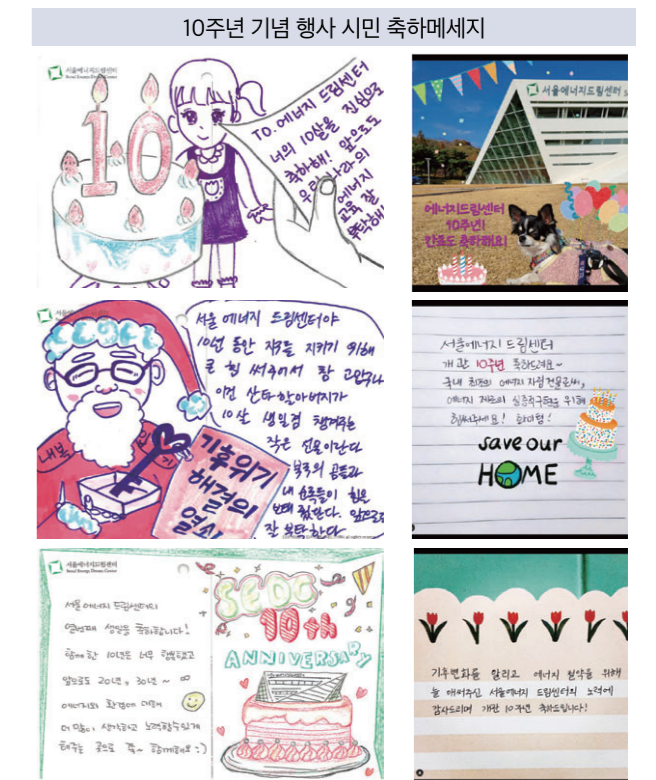 10주년 기념 행사 시민 축하메세지
서울에너지드림센터
Seoul Energy Dream Center
10
TO. 에너지 드림센터
너의 10살을 진심으로
축하해! 앞으로도
우리나라의
에너지
교육 잘
부탁해!
서울에너지드림센터
에너지드림센터
10주년!
칸쵸도 축하해요!
서울 에너지 드림센터야
10년 동안 지구를 지키기 위해
큰 힘 써주어서 참 고맙구나
이건 산타할아버지가
10살 생일겸 챙겨주는
작은 선물이란다
북극의 곰들과
내 순록들이 힘을
보태 줬단다. 앞으로도
잘 부탁한다
기후위기
해결의
열쇠
서울에너지드림센터
개관 10주년 축하드려요~
국내 최초의 에너지 자립 건물로써,
에너지 제로의 실증적 구현을 위해
힘써주세요! 화이팅!
save our
HOME
서울에너지드림센터
Seoul Energy Dream Center
서울 에너지 드림센터의
열번째 생일을 축하합니다!
함께한 10년은 너무 행복했고
앞으로도 20년, 30년 ~ ∞
에너지와 환경에 대해
더 많이 생각하고 노력할수있게
해주는 곳으로 쭉~ 함께해요 :)
SEDC
10th
ANNIVERSARY
기후변화를 알리고 에너지 절약을 위해
늘 애써주신 서울에너지 드림센터의 노력에
감사드리며 개관 10주년 축하드립니다!